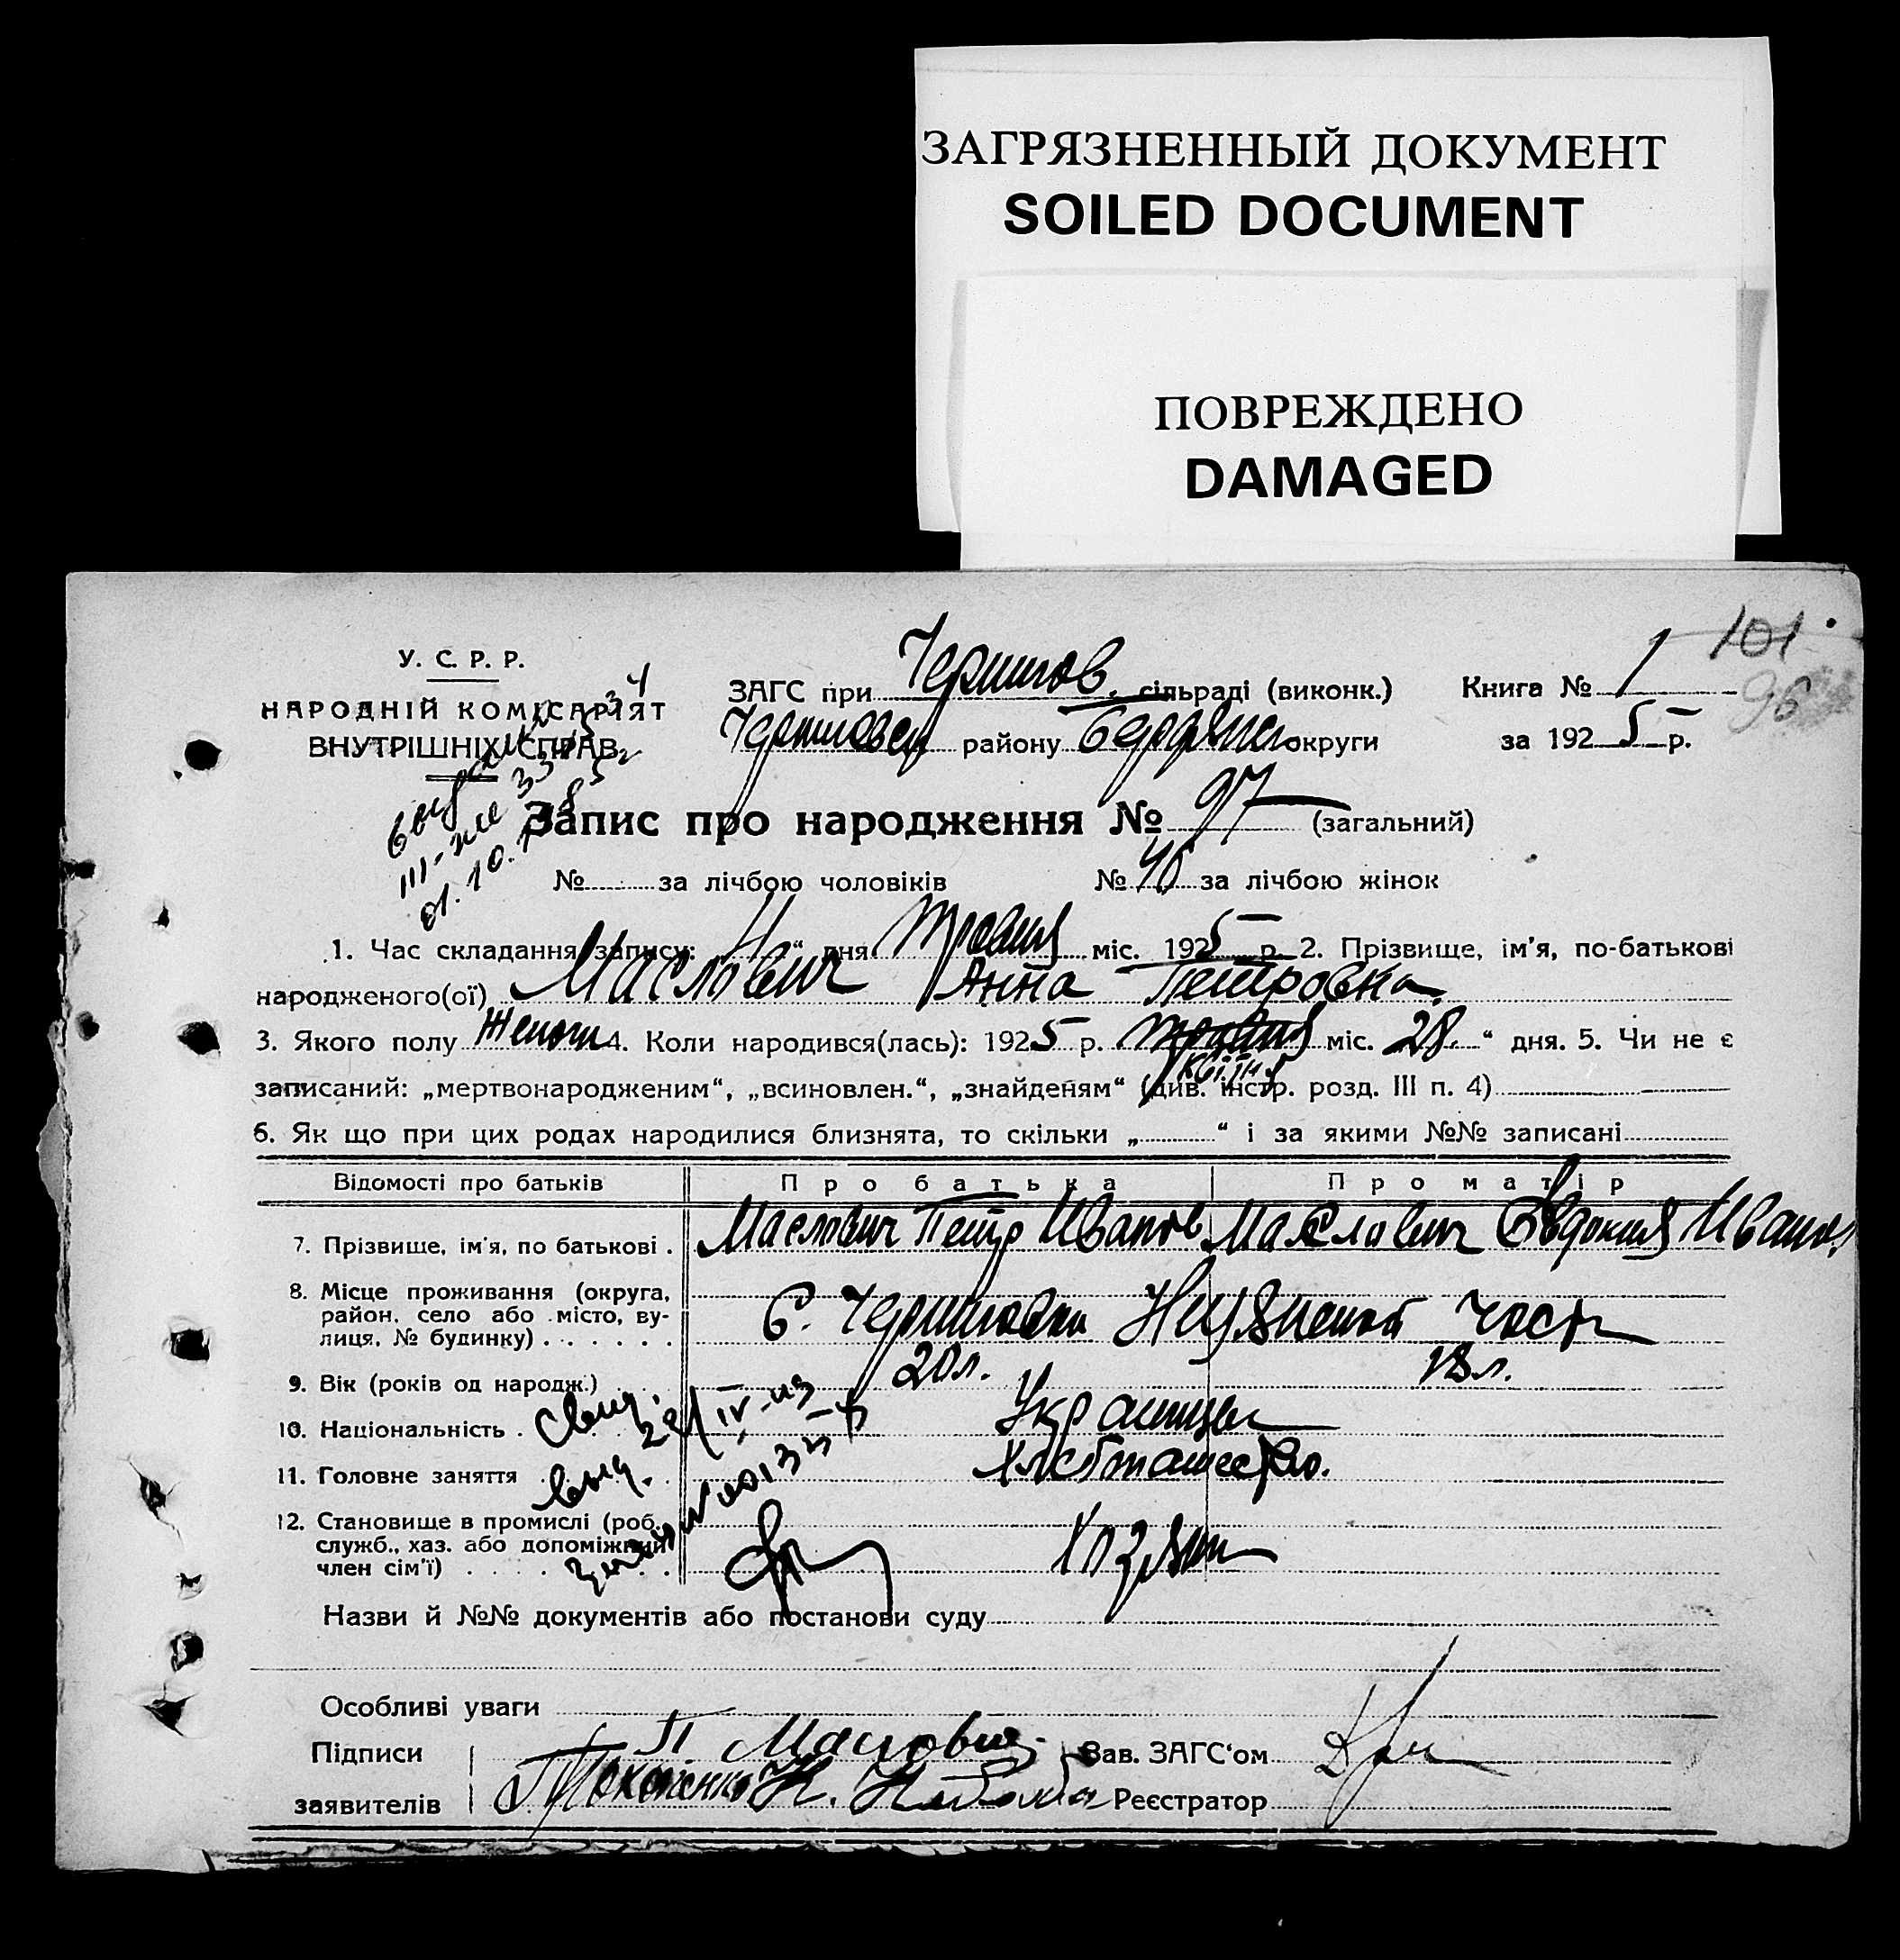 ЗАГРЯЗНЕННЫЙ ДОКУМЕНТ
SOILED DOCUMENT
ПОВРЕЖДЕНО
DAMAGED
101
96
У. С. Р. Р.
НАРОДНІЙ КОМІСАРІЯТ
ВНУТРІШНІХ СПРАВ
ЗАГС при Чернигов. сільраді (виконк.) Книга № 1
району Бердянс округи за 1925 р.
Запис про народження № 97 (загальний)
№ за лічбою чоловіків № 46 за лічбою жінок
1. Час складання запису: „ “ дня Травня міс. 1925 р. 2. Прізвище, ім'я, по-батькові
народженого(ої) Маслович Анна Петровна.
3. Якого полу 4. Коли народився(лась): 1925 р. травня міс. 28. “ дня. 5. Чи не є
квітня
записаний: „мертвонародженим“, „всиновлен.“, „знайденям“ (див. інстр. розд. III п. 4)
6. Як що при цих родах народилися близнята, то скільки „ “ і за якими №№ записані
Відомості про батьків Про батька Про матір
7. Прізвище, ім'я, по батькові . Маслович Петр Иванов Маслович Евдокия Иванов.
8. Місце проживання (округа,
район, село або місто, ву-
лиця, № будинку) . . . . . . С. Черниговка части
9. Вік (років од народж.) 20 л. 18 л.
10. Національність . Украинцы
11. Головне заняття Хлебопашество.
12. Становище в промислі (роб.
служб., хаз. або допоміжний
член сім'ї) . . . . Хозяин
Свид.
выд. 29/IV-
Назви й №№ документів або постанови суду
Особливі уваги
Підписи П. Маслович Зав. ЗАГС'ом
заявителів Реєстратор